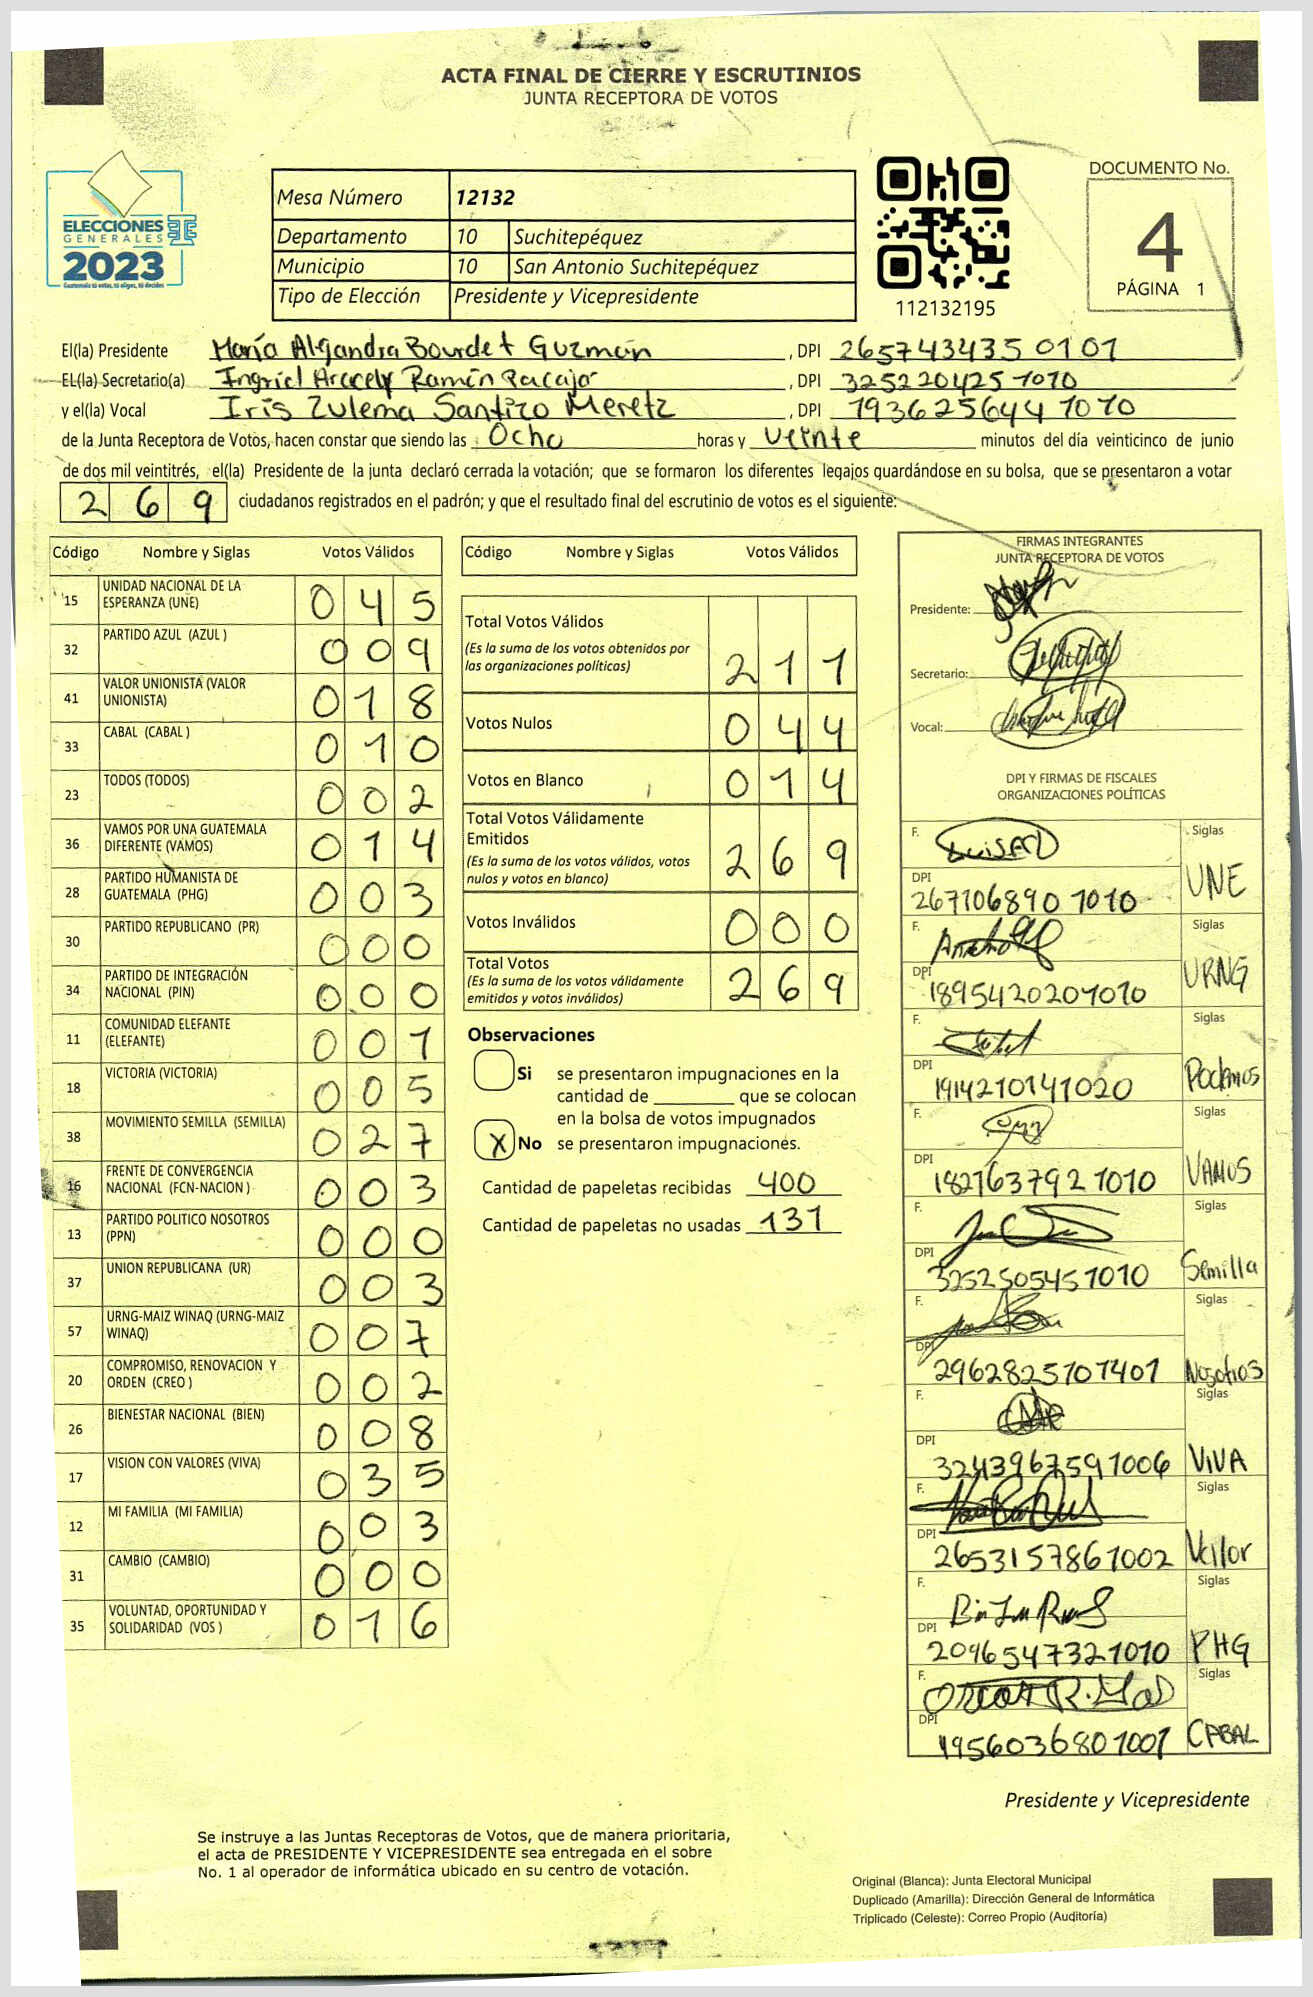 ACTA FINAL DE CIERRE Y ESCRUTINIOS
JUNTA RECEPTORA DE VOTOS
ELECCIONES
GENERALES
2023
Guatemala tú votas, tú eliges, tú decides
Mesa Número 12132
Departamento 10 Suchitepéquez
Municipio 10 San Antonio Suchitepéquez
Tipo de Elección Presidente y Vicepresidente
112132195
DOCUMENTO No.
4
PÁGINA 1
El(la) Presidente María Alejandra Bourdet Guzmán , DPI 265743435 0101
EL(la) Secretario(a) Ingrid Aracely Ramón Pacajó , DPI 325220425 1010
y el(la) Vocal Iris Zulema Santizo Meretz , DPI 193625644 1010
de la Junta Receptora de Votos, hacen constar que siendo las Ocho horas y veinte minutos del día veinticinco de junio
de dos mil veintitrés, el(la) Presidente de la junta declaró cerrada la votación; que se formaron los diferentes legajos guardándose en su bolsa, que se presentaron a votar
269 ciudadanos registrados en el padrón; y que el resultado final del escrutinio de votos es el siguiente:
Código Nombre y Siglas Votos Válidos
15 UNIDAD NACIONAL DE LA ESPERANZA (UNE) 045
32 PARTIDO AZUL (AZUL ) 009
41 VALOR UNIONISTA (VALOR UNIONISTA) 018
33 CABAL (CABAL ) 010
23 TODOS (TODOS) 002
36 VAMOS POR UNA GUATEMALA DIFERENTE (VAMOS) 014
28 PARTIDO HUMANISTA DE GUATEMALA (PHG) 003
30 PARTIDO REPUBLICANO (PR) 000
34 PARTIDO DE INTEGRACIÓN NACIONAL (PIN) 000
11 COMUNIDAD ELEFANTE (ELEFANTE) 001
18 VICTORIA (VICTORIA) 005
38 MOVIMIENTO SEMILLA (SEMILLA) 027
16 FRENTE DE CONVERGENCIA NACIONAL (FCN-NACION ) 003
13 PARTIDO POLITICO NOSOTROS (PPN) 000
37 UNION REPUBLICANA (UR) 003
57 URNG-MAIZ WINAQ (URNG-MAIZ WINAQ) 007
20 COMPROMISO, RENOVACION Y ORDEN (CREO ) 002
26 BIENESTAR NACIONAL (BIEN) 008
17 VISION CON VALORES (VIVA) 035
12 MI FAMILIA (MI FAMILIA) 003
31 CAMBIO (CAMBIO) 000
35 VOLUNTAD, OPORTUNIDAD Y SOLIDARIDAD (VOS ) 016
Código Nombre y Siglas Votos Válidos
Total Votos Válidos
(Es la suma de los votos obtenidos por
las organizaciones políticas) 211
Votos Nulos 044
Votos en Blanco 014
Total Votos Válidamente
Emitidos
(Es la suma de los votos válidos, votos
nulos y votos en blanco) 269
Votos Inválidos 000
Total Votos
(Es la suma de los votos válidamente
emitidos y votos inválidos) 269
Observaciones
Si se presentaron impugnaciones en la
cantidad de ________ que se colocan
en la bolsa de votos impugnados
X No se presentaron impugnaciones.
Cantidad de papeletas recibidas 400
Cantidad de papeletas no usadas 131
FIRMAS INTEGRANTES
JUNTA RECEPTORA DE VOTOS
Presidente:
Secretario:
Vocal:
DPI Y FIRMAS DE FISCALES
ORGANIZACIONES POLÍTICAS
F. Siglas
DPI 267106890 1010 UNE
F. Siglas
DPI 1895420201010 URNG
F. Siglas
DPI 1914210141020 Podemos
F. Siglas
DPI 182163792 1010 VAMOS
F. Siglas
DPI 3252505451010 Semilla
F. Siglas
DPI 2962825101401 Nosotros
F. Siglas
DPI 3243967591006 VIVA
F. Siglas
DPI 2653157861002 Valor
F. Siglas
DPI 2096547321010 PHG
F. Siglas
DPI 1956036801001 CABAL
Presidente y Vicepresidente
Se instruye a las Juntas Receptoras de Votos, que de manera prioritaria,
el acta de PRESIDENTE Y VICEPRESIDENTE sea entregada en el sobre
No. 1 al operador de informática ubicado en su centro de votación.
Original (Blanca): Junta Electoral Municipal
Duplicado (Amarilla): Dirección General de Informática
Triplicado (Celeste): Correo Propio (Auditoría)